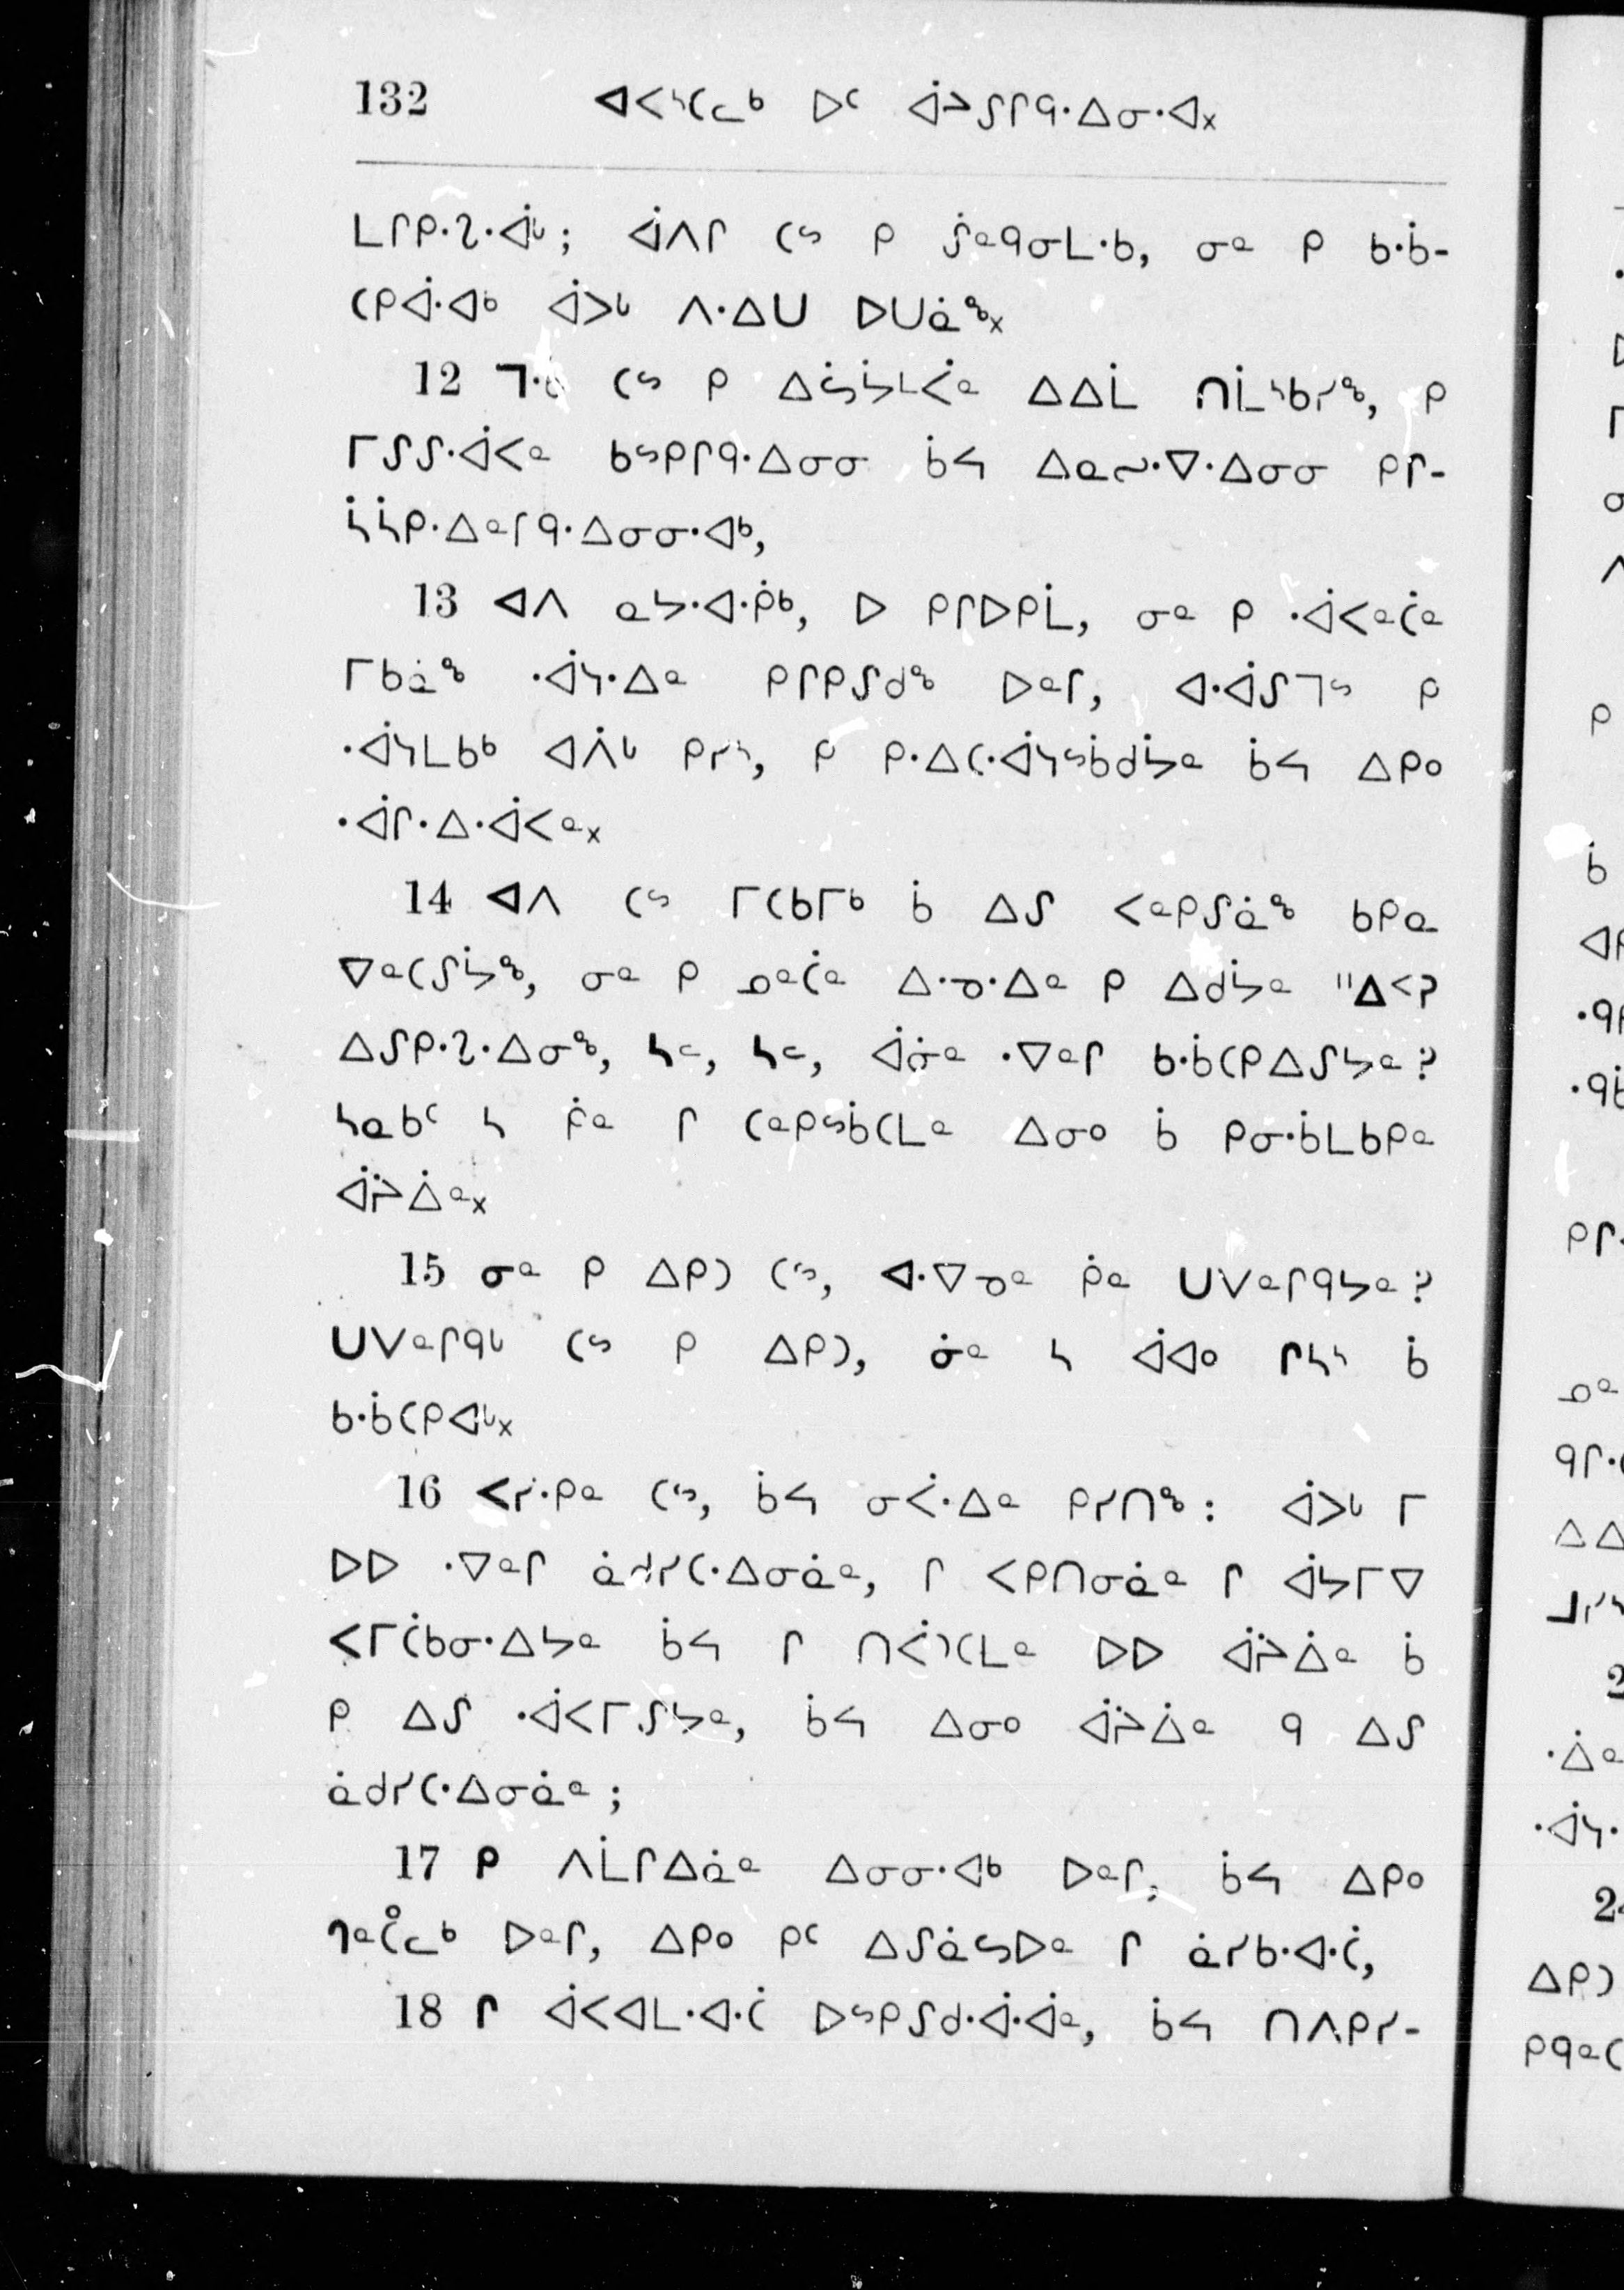 132 ᐊᐸᔅᑕᓚᒃ ᐅᑦ ᐋᔨᔑᒋᑫᐧᐃᓂᐧᐊ᙮
ᒪᒋᑭᐧᔐᐧᐋᒡ; ᐋᐱᒋ ᑕᔥ ᑭ ᔒᓐᑫᓂᒪᐧᑲ, ᓂᓐ ᑭ ᑲᐧᑳ-
ᑕᑭᐋᐧᐊᒃ ᐋᐳᒡ ᐱᐧᐃᑌ ᐅᑌᓈ�*᙮
12 ᑕᔥ ᑭ ᐃᐃᒫ ᑎᒫᔅᑲᓯ*, ᑭ
ᒥᔑᔑᐧᐋᐸᓐ ᑲᔥᑭᒋᑫᐧᐃᓂᓂ ᑳᔦ ᐃᓇᓓᐧᐁᐧᐃᓂᓂ ᑭᒋ-
ᓵᓵᑭᐧᐃᓐᒋᑫᐧᐃᓂᓂᐧᐊᒃ,
13 ᐊᐱ ᓇᔭᐧᐊᐧᑮᒃ, ᐅ ᑭᒋᐅᑭᒫ, ᓂᓐ ᑭ ᐧᐋᐸᓐᑖᓐ
ᒥᑲᓈ* ᐧᐋᓴᐧᐃᓐ ᑭᒋᑭᔑᑯ* ᐅᓐᒋ, ᐊᐧᐋᔑᒣᔥ ᑭ
ᐧᐋᓴᒪᑲᒃ ᐊᐲᒡ ᑭᓯᔅ, ᑭ ᑭᐧᐃᑕᐧᐋᓴᔥᑳᑯᔮᓐ ᑳᔦ ᐃᑭᐤ
ᐧᐋᒋᐧᐃᐧᐋᐸᓐ᙮
14 ᐊᐱ ᑕᔥ ᒥᑕᑲᒥᒃ ᑳ ᐃᔑ ᐸᓐᑭᔑᓈ* ᑲᑭᓇ
ᐁᓐᑕᔑᔮ*, ᓂᓐ ᑭ ᓄᓐᑖᓐ ᐃᐧᓀᐧᐃᓐ ᑭ ᐃᑯᔮᓐ "ᐃᐸᕈ
ᐃᔑᑭᐧᔐᐧᐃᓂ*, ᓴᓪ, ᓴᓪ, ᐋᓃᓐ ᐧᐁᓐᒋ ᑲᐧᑳᑕᑭᐃᔑᔭᓐ?
ᓴᓇᑲᑦ ᓴ ᑮᓐ ᒋ ᑕᓐᑭᔥᑳᑕᒪᓐ ᐃᓂᐤ ᑳ ᑭᓂᐧᑳᒪᑲᑭᓐ
ᐋᔩᐄᓐ᙮
15 ᓂᓐ ᑭ ᐃᑭᑐ ᑕᔥ, ᐊᐧᐁᓀᓐ ᑮᓐ ᑌᐯᓐᒋᑫᔭᓐ?
ᑌᐯᓐᒋᑫᒡ ᑕᔥ ᑭ ᐃᑭᑐ, ᓃᓐ ᓴ ᐋᐊᐤ ᒋᓴᔅ ᑳ
ᑲᐧᑳᑕᑭᐊᒡ᙮
16 ᐸᓰᐧᑭᓐ ᑕᔥ, ᑳᔦ ᓂᐹᐧᐃᓐ ᑭᓯᑎ*: ᐋᐳᒡ ᒥ
ᐅᐅ ᐧᐁᓐᒋ ᓈᑯᓯᑕᐧᐃᓂᓈᓐ, ᒋ ᐸᑭᑎᓂᓈᓐ ᒋ ᐋᔭᒥᐁ
ᐸᒥᑖᑲᓂᐧᐃᔭᓐ ᑳᔦ ᒋ ᑎᐹᑐᑕᒪᓐ ᐅᐅ ᐋᔩᐄᓐ ᑳ
ᑭ ᐃᔑ ᐧᐋᐸᒥᔑᔭᓐ, ᑳᔦ ᐃᓂᐤ ᐋᔩᐄᓐ ᑫ ᐃᔑ
ᓈᑯᓯᑕᐧᐃᓂᓈᓐ;
17 ᑭ ᐱᒫᒋᐃᓈᓐ ᐃᓂᓂᐧᐊᒃ ᐅᓐᒋ, ᑳᔦ ᐃᑭᐤ
ᒉᓐᑖᐃᓚᒃ ᐅᓐᒋ, ᐃᑭᐤ ᑭᑦ ᐃᔑᓈᔕᐅᓐ ᒋ ᓈᓯᑲᐧᐊᐧᑖ,
18 ᒋ ᐋᐸᐊᒪᐧᐊᐧᑖ ᐅᔥᑭᔑᑯᐧᐋᐧᐋᓐ, ᑳᔦ ᑎᐱᑭᓯ-